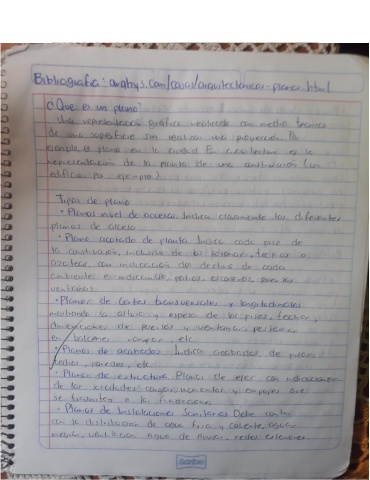 Bibliografia: arqhys.com/casas/arquitectonicos-planos.html
¿Que es un plano?
Una representación gráfica realizada con medios tecnicos
de una superficie sin realizar una proyeccion. Por
ejemplo, El plano en la ciudad. En arquitectura es la
representacion de la planta de una construccion (un
edificio, por ejemplo.)
Tipos de plano
• Planos nivel de acceso. Indica claramente los diferentes
planos de acceso
• Plano acotado de planta Indica cada piso de
la construccion, inclusive de techos o
azoteas, con indicación del destino de cada
ambientes e patios, escaleras, puertas y
ventanas
• Planos de Cortes transversales y longitudinales
mostrando la altura y espesor de los pisos, techos,
dimensiones de puertas y ventanas,
balcones, etc.
• Planos de acabados Indica acabados de pisos,
techos, paredes, etc.
• Planos de estructura Planos de ejes con indicaciones
de las
se transmiten a la
• Planos de Instalaciones Sanitarias Debe
con la distribucion de agua fria y caliente, aguas
negras, ventilacion Agua de lluvias, redes exteriores
Scribe